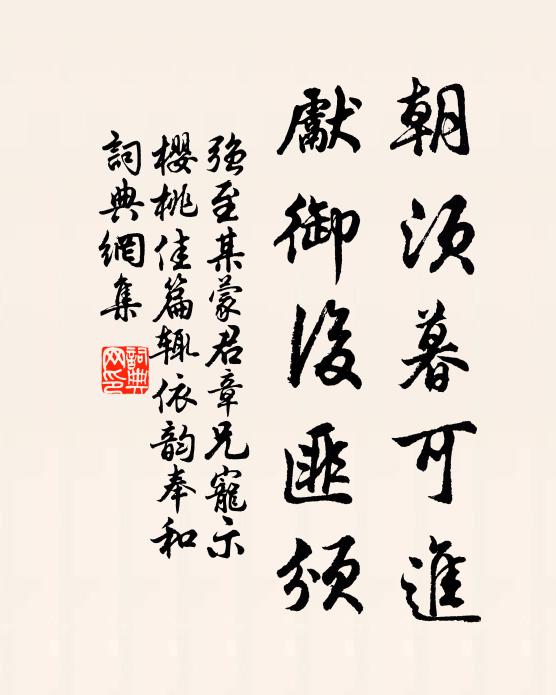 朝須暮可進
獻御後匪頒
強至某蒙君章兄寵示
櫻桃佳篇輒依韵奉和
詞典網集
詞典網印